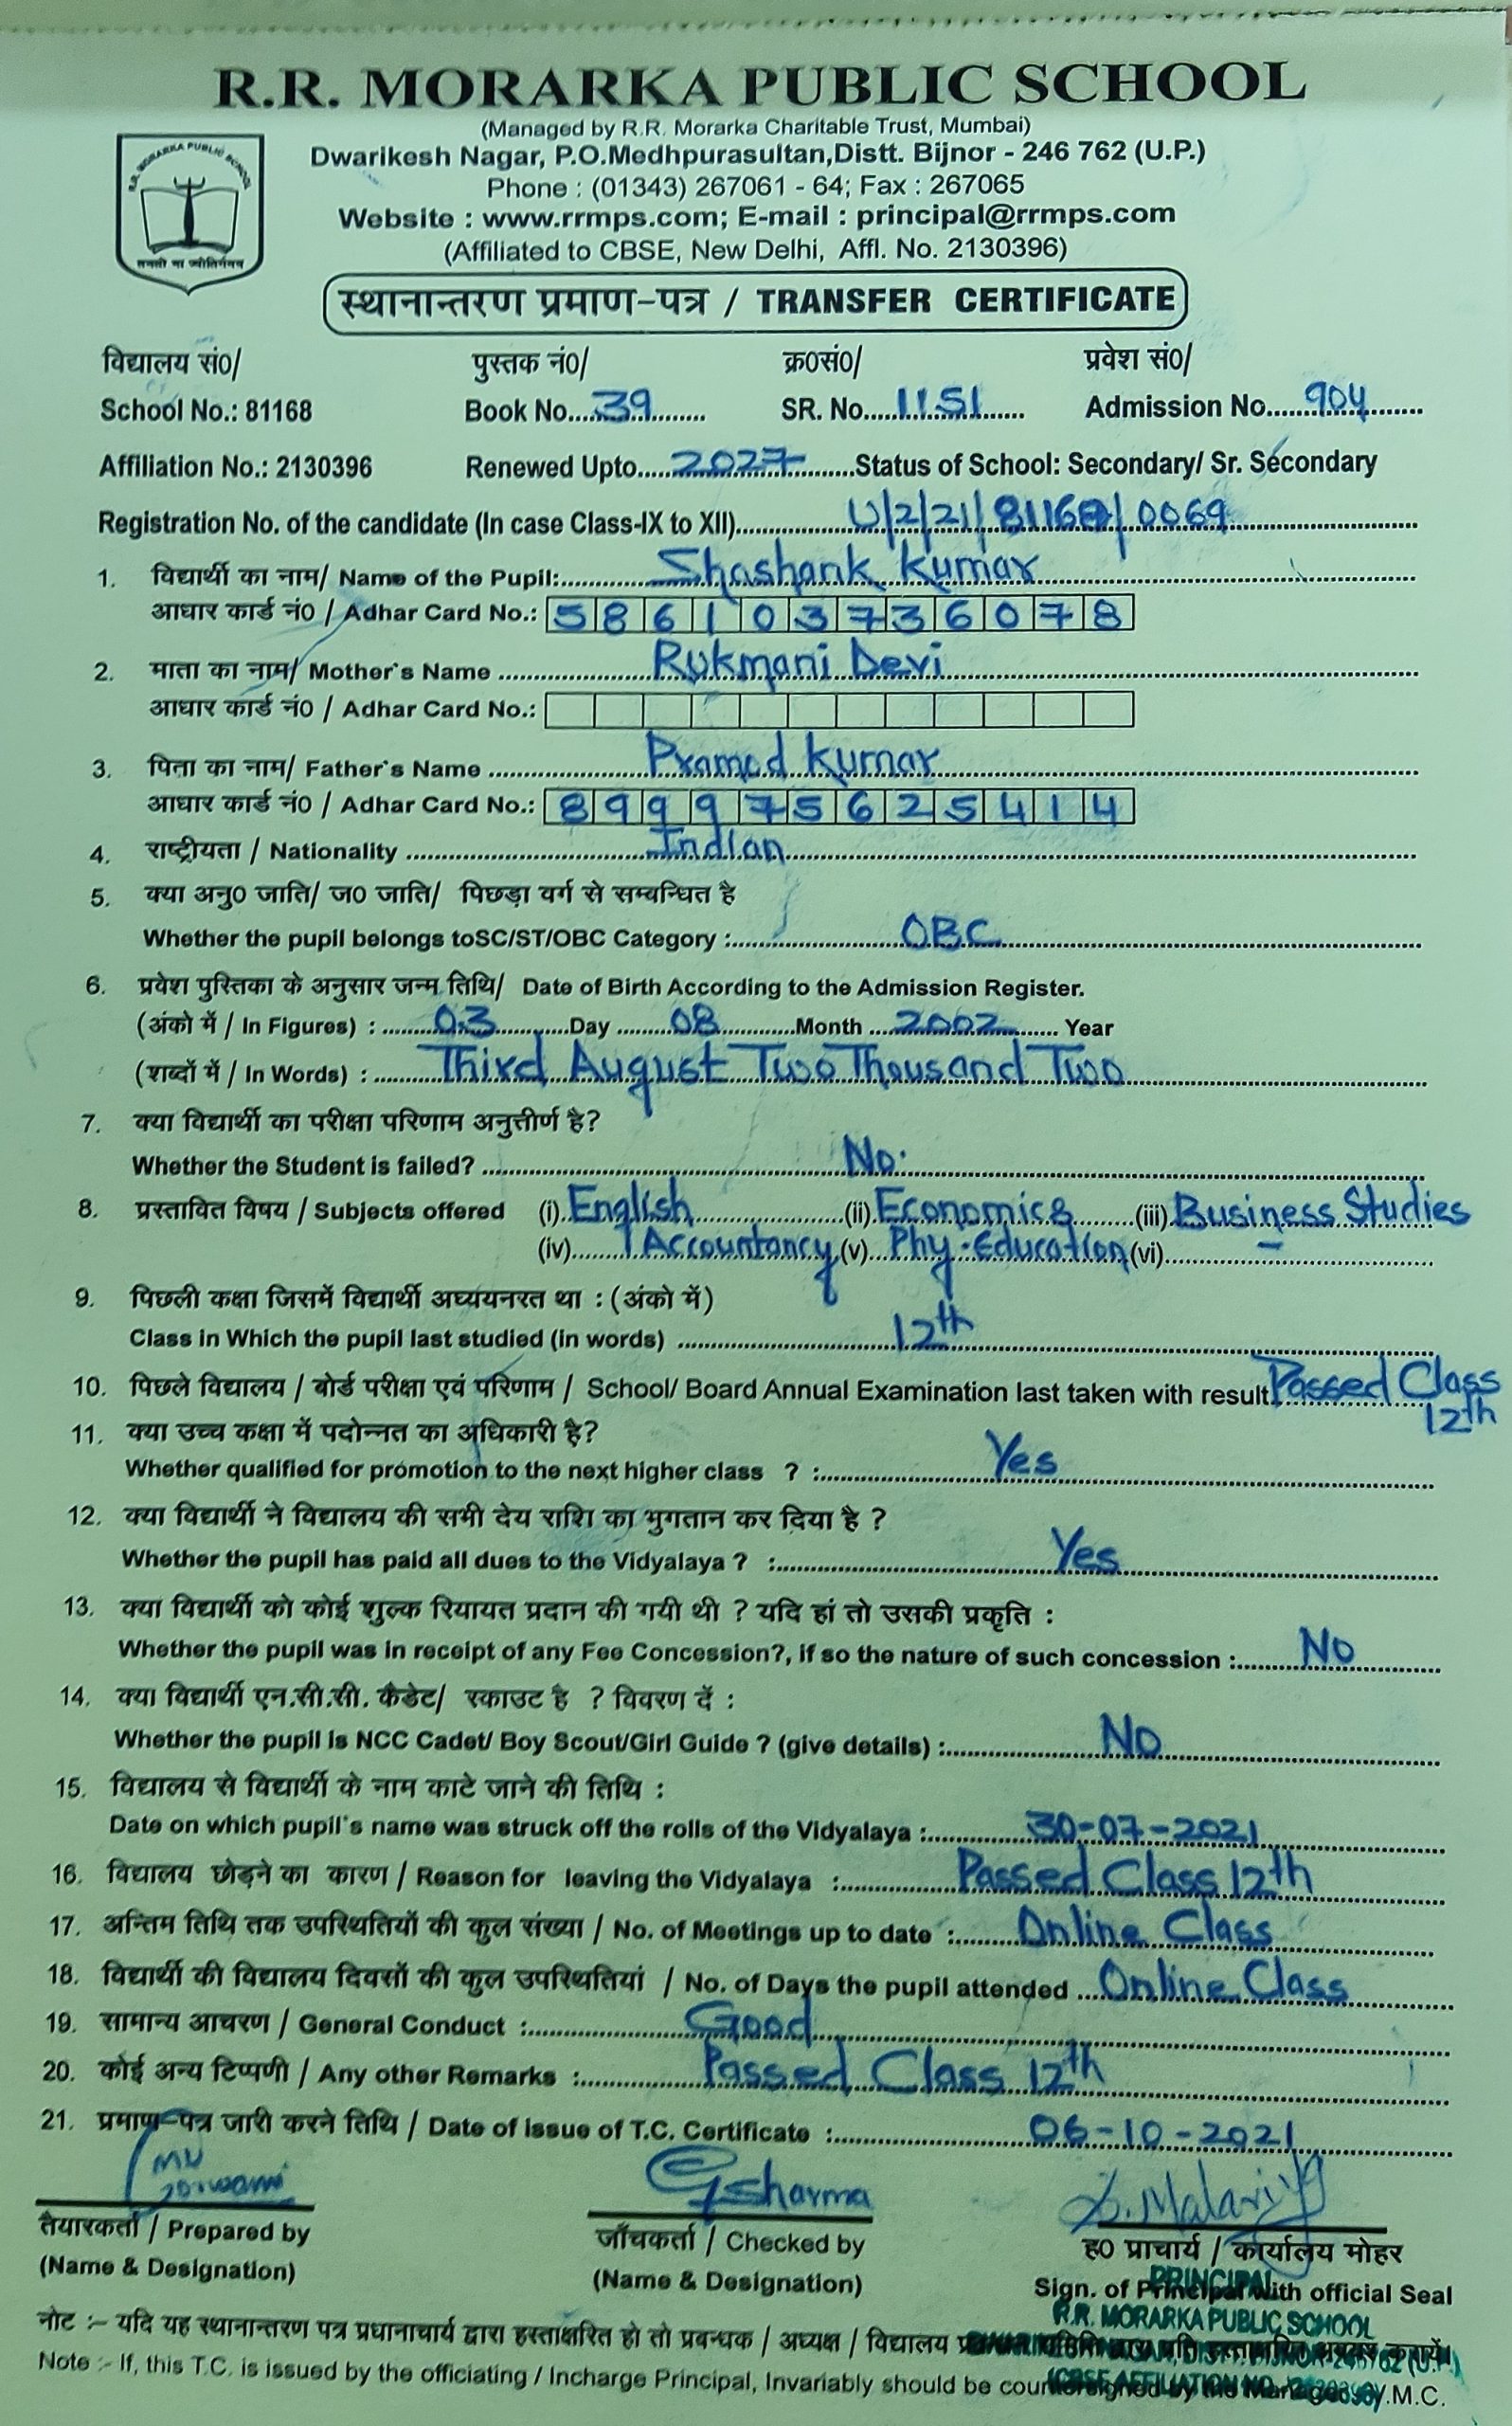 R.R. MORARKA PUBLIC SCHOOL
(Managed by R.R. Morarka Charitable Trust, Mumbai)
Dwarikesh Nagar, P.O.Medhpurasultan,Distt. Bijnor - 246 762 (U.P.)
Phone : (01343) 267061 - 64; Fax : 267065
Website : www.rrmps.com; E-mail : principal@rrmps.com
(Affiliated to CBSE, New Delhi, Affl. No. 2130396)
R.R. MORARKA PUBLIC SCHOOL
स्थानान्तरण प्रमाण-पत्र / TRANSFER CERTIFICATE
विद्यालय सं0/ पुस्तक नं0/ क्र0सं0/ प्रवेश सं0/
School No.: 81168 Book No. 39 SR. No. 1151 Admission No. 904
Affiliation No.: 2130396 Renewed Upto 2027 Status of School: Secondary/ Sr. Secondary
Registration No. of the candidate (In case Class-IX to XII) U/2/21/81168/0069
1. विद्यार्थी का नाम/ Name of the Pupil: Shashank Kumar
आधार कार्ड नं0 / Adhar Card No.: 586103736078
2. माता का नाम/ Mother's Name Rukmani Devi
आधार कार्ड नं0 / Adhar Card No.:
3. पिता का नाम/ Father's Name Pramod Kumar
आधार कार्ड नं0 / Adhar Card No.: 899975625414
4. राष्ट्रीयता / Nationality Indian
5. क्या अनु0 जाति/ ज0 जाति/ पिछड़ा वर्ग से सम्बन्धित है
Whether the pupil belongs toSC/ST/OBC Category : OBC
6. प्रवेश पुस्तिका के अनुसार जन्म तिथि/ Date of Birth According to the Admission Register.
(अंको में / In Figures) : 03 Day 08 Month 2002 Year
(शब्दों में / In Words) : Third August Two Thousand Two
7. क्या विद्यार्थी का परीक्षा परिणाम अनुत्तीर्ण है?
Whether the Student is failed? No.
8. प्रस्तावित विषय / Subjects offered (i) English (ii) Economics (iii) Business Studies
(iv) Accountancy (v) Phy. Education (vi) -
9. पिछली कक्षा जिसमें विद्यार्थी अघ्ययनरत था : (अंको में)
Class in Which the pupil last studied (in words) 12th
10. पिछले विद्यालय / बोर्ड परीक्षा एवं परिणाम / School/ Board Annual Examination last taken with result Passed Class
12th
11. क्या उच्च कक्षा में पदोन्नत का अधिकारी है?
Whether qualified for promotion to the next higher class ? : Yes
12. क्या विद्यार्थी ने विद्यालय की सभी देय राशि का भुगतान कर दिया है ?
Whether the pupil has paid all dues to the Vidyalaya ? : Yes
13. क्या विद्यार्थी को कोई शुल्क रियायत प्रदान की गयी थी ? यदि हां तो उसकी प्रकृति :
Whether the pupil was in receipt of any Fee Concession?, if so the nature of such concession : No
14. क्या विद्यार्थी एन.सी.सी. कैडेट/ स्काउट है ? विवरण दें :
Whether the pupil is NCC Cadet/ Boy Scout/Girl Guide ? (give details) : No
15. विद्यालय से विद्यार्थी के नाम काटे जाने की तिथि :
Date on which pupil's name was struck off the rolls of the Vidyalaya : 30-07-2021
16. विद्यालय छोड़ने का कारण / Reason for leaving the Vidyalaya : Passed Class 12th
17. अन्तिम तिथि तक उपस्थितियों की कुल संख्या / No. of Meetings up to date : Online Class
18. विद्यार्थी की विद्यालय दिवसों की कुल उपस्थितियां / No. of Days the pupil attended Online Class
19. सामान्य आचरण / General Conduct : Good
20. कोई अन्य टिप्पणी / Any other Remarks : Passed Class 12th
21. प्रमाण-पत्र जारी करने तिथि / Date of issue of T.C. Certificate : 06-10-2021
Sharma
तैयारकर्ता / Prepared by जाँचकर्ता / Checked by ह0 प्राचार्य / कार्यालय मोहर
(Name & Designation) (Name & Designation) Sign. of Principal with official Seal
PRINCIPAL
R.R. MORARKA PUBLIC SCHOOL
नोट :- यदि यह स्थानान्तरण पत्र प्रधानाचार्य द्वारा हस्ताक्षरित हो तो प्रबन्धक / अध्यक्ष / विद्यालय
Note :- If, this T.C. is issued by the officiating / Incharge Principal, Invariably should be countersigned by the Manager V.M.C.